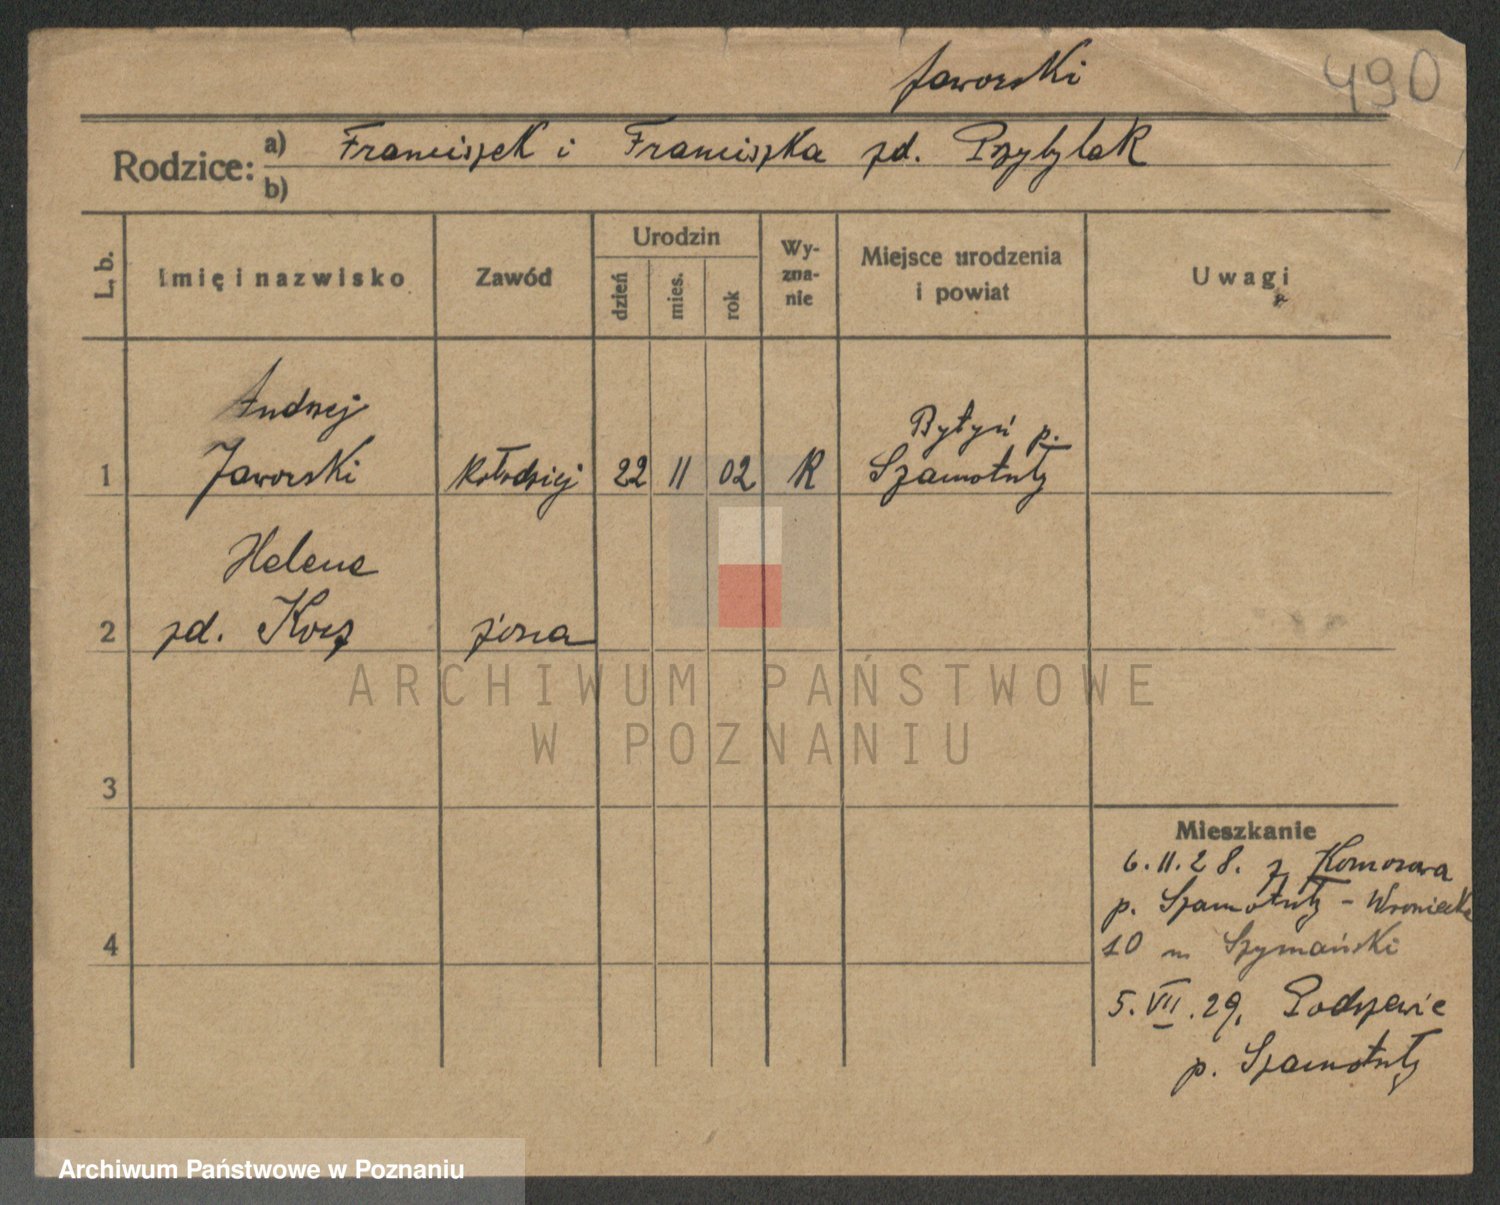 Jaworski
490
Rodzice:
a) Franciszek i Franciszka zd. Przybylak
b)
L. b.
Imię i nazwisko
Zawód
Urodzin
dzień
mies.
rok
Wy-
zna-
nie
Miejsce urodzenia
i powiat
Uwagi
Andrzej
Bytyń p.
1 Jaworski kołodziej 22 11 02 R Szamotuły
Helena
2 zd. Kosz żona
3
4
Mieszkanie
6.11.28. z Komorowa
p. Szamotuły - Wroniecka
10 m Szymański
5.VII.29. Podrzewie
p. Szamotuły
ARCHIWUM PAŃSTWOWE
W POZNANIU
Archiwum Państwowe w Poznaniu